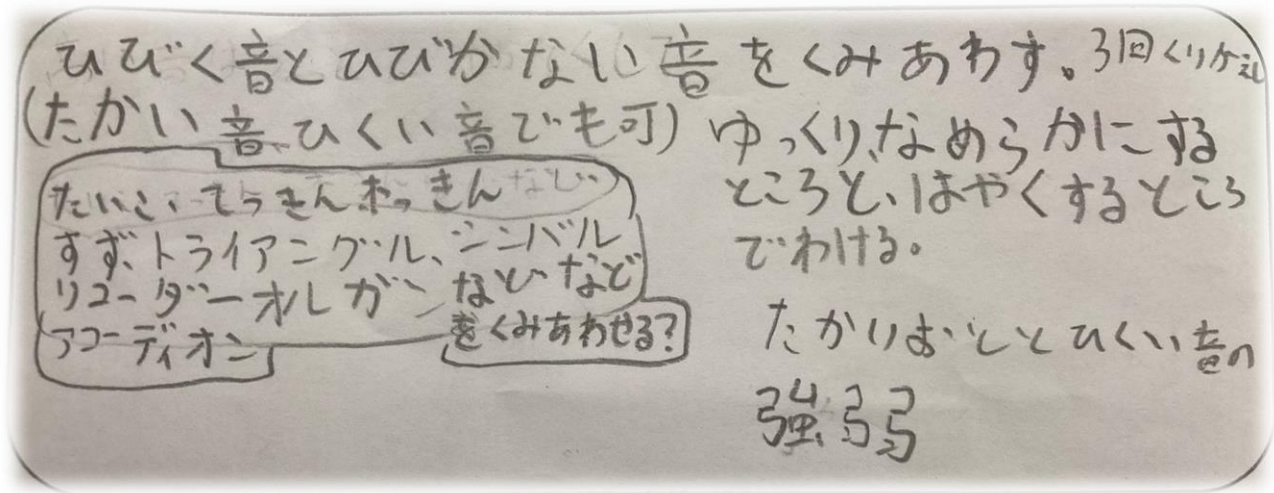 ひびく音とひびかない音をくみあわす。3回くりかえし
(たかい音、ひくい音でも可)
たいこ、てっきん、もっきんなど
すず、トライアングル、シンバル
リコーダーオルガンなどなど
アコーディオン
をくみあわせる?
ゆっくり、なめらかにする
ところと、はやくするところ
でわける。
たかいおととひくい音の
強弱